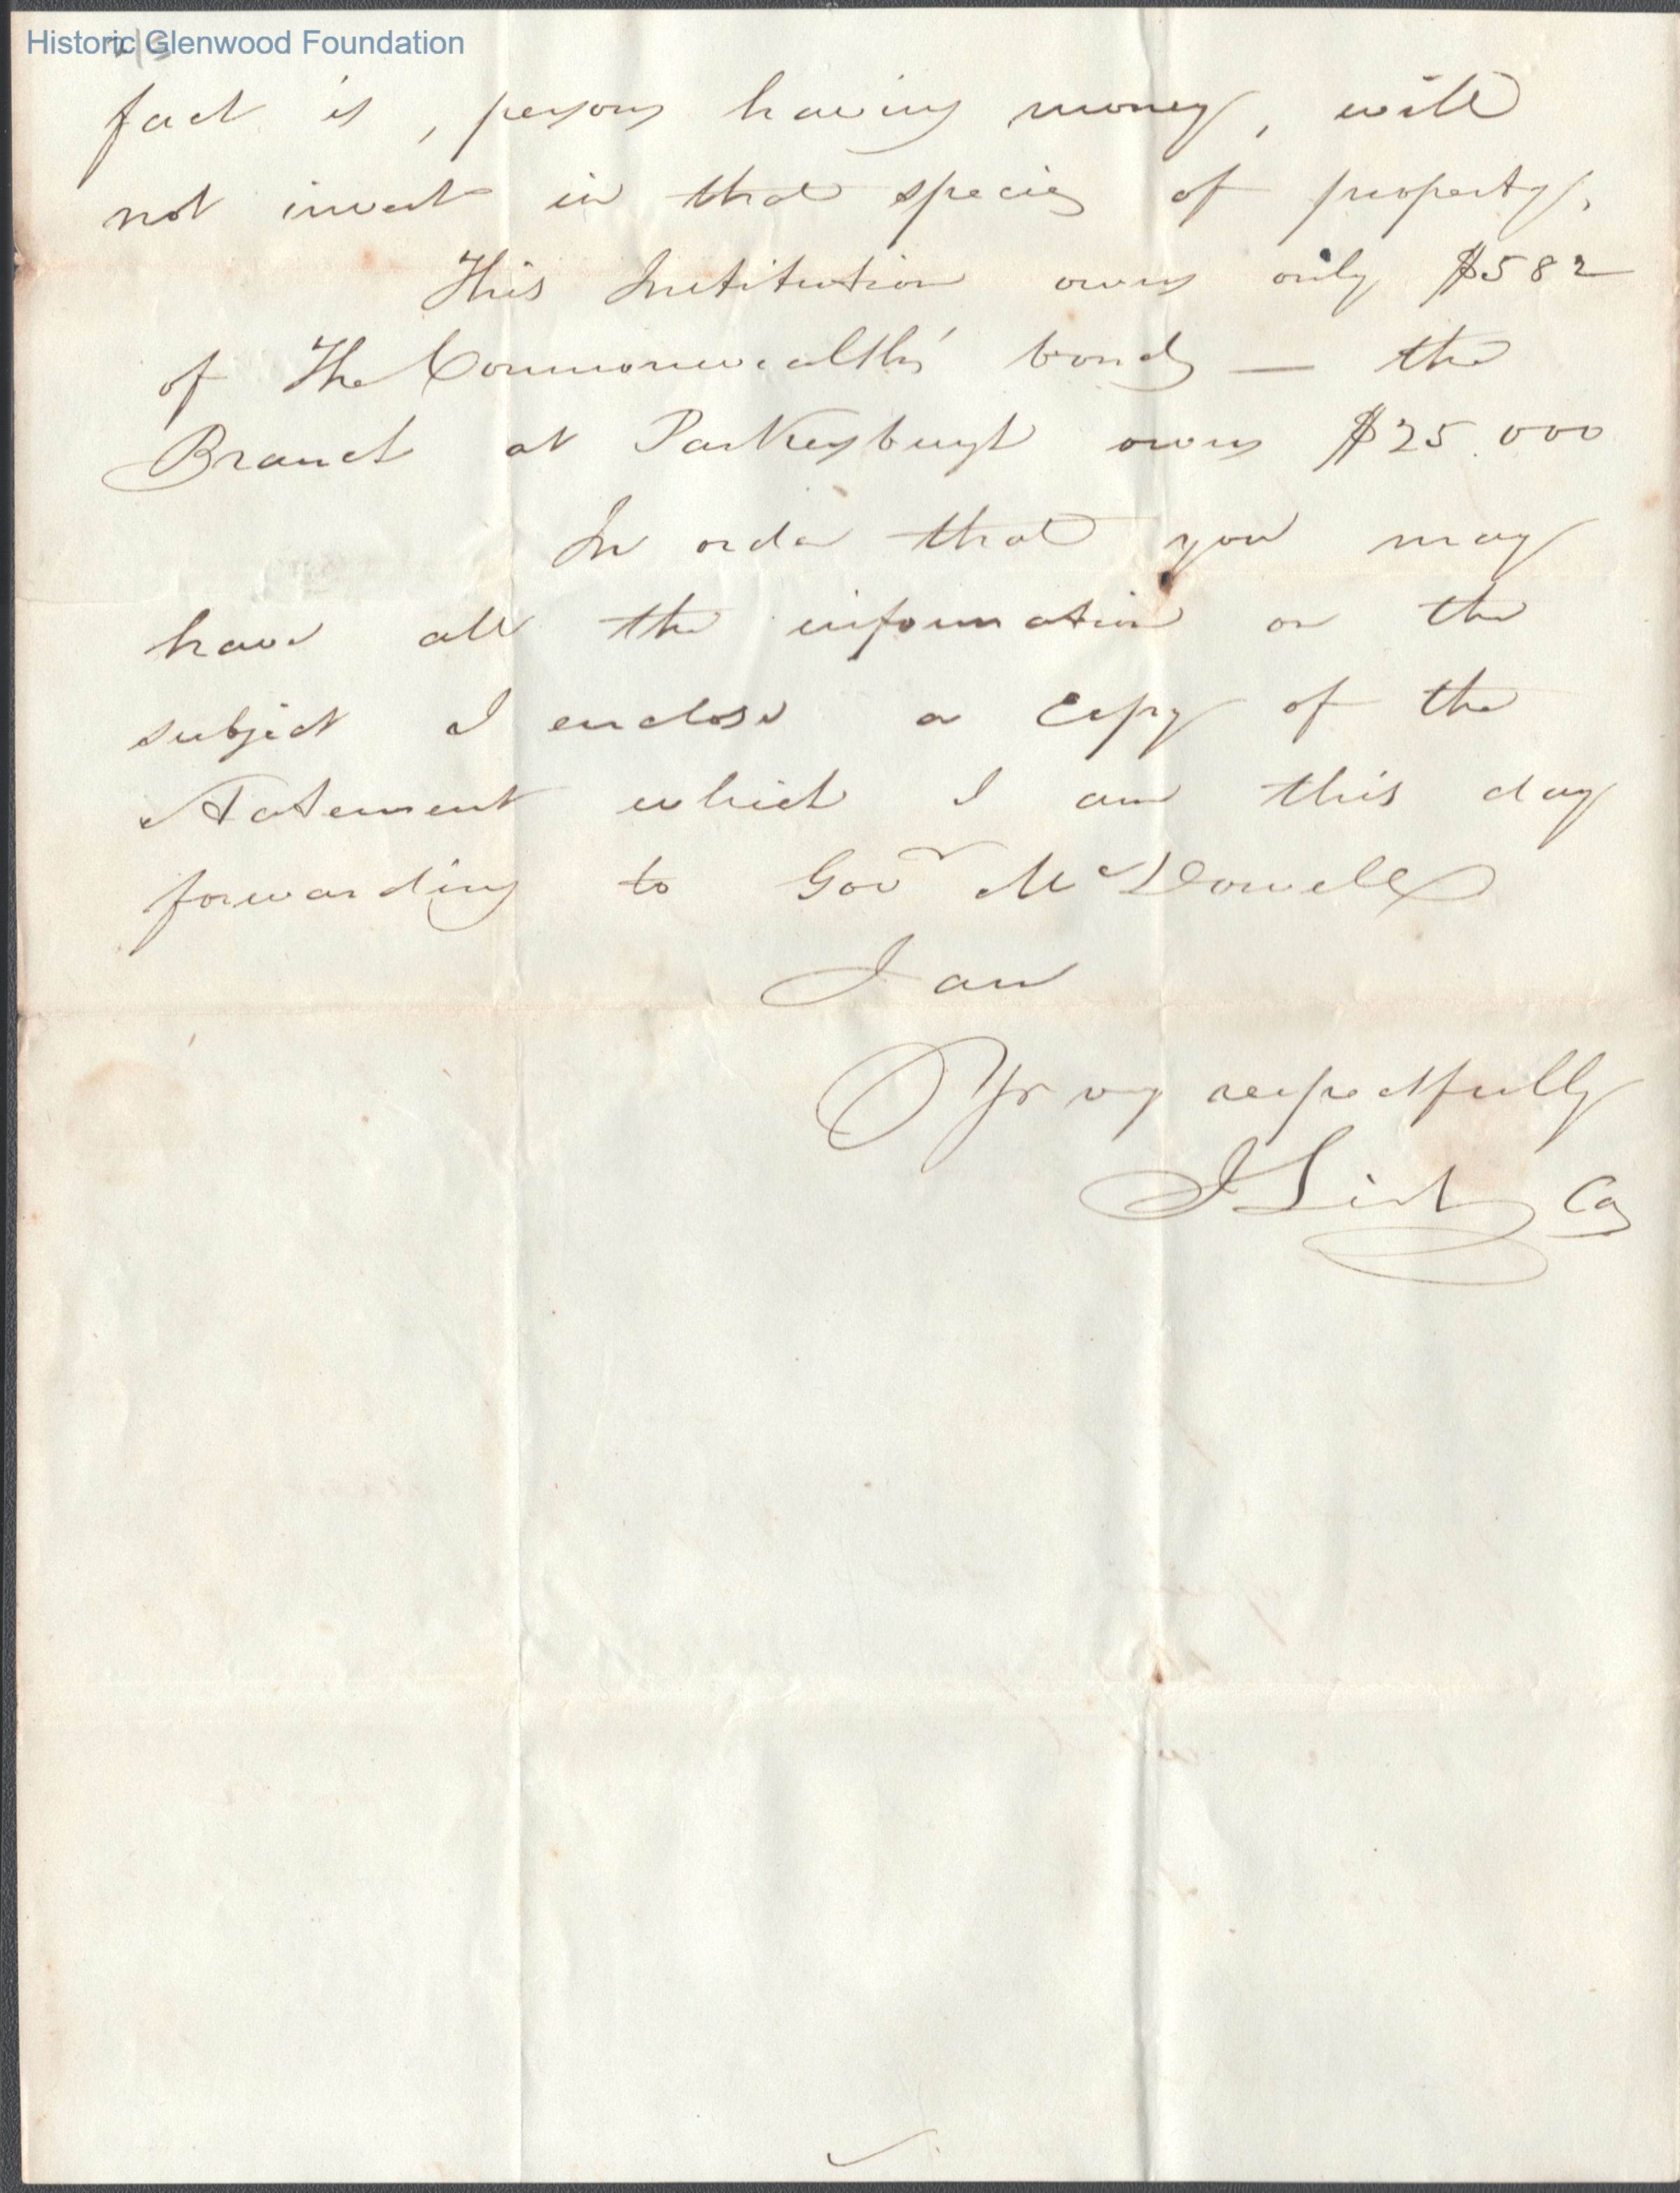 Historic Glenwood Foundation
fact is, persons having money, will
not invest in that species of property.
This Institution owns only $582
of The Commonwealth's bonds — the
Branch at Parkersburgh owns $25.000
In order that you may
have all the information on the
subject I enclose a Copy of the
Statement which I am this day
forwarding to Govr McDowell
I am
Yr vy respectfully
J List Cas